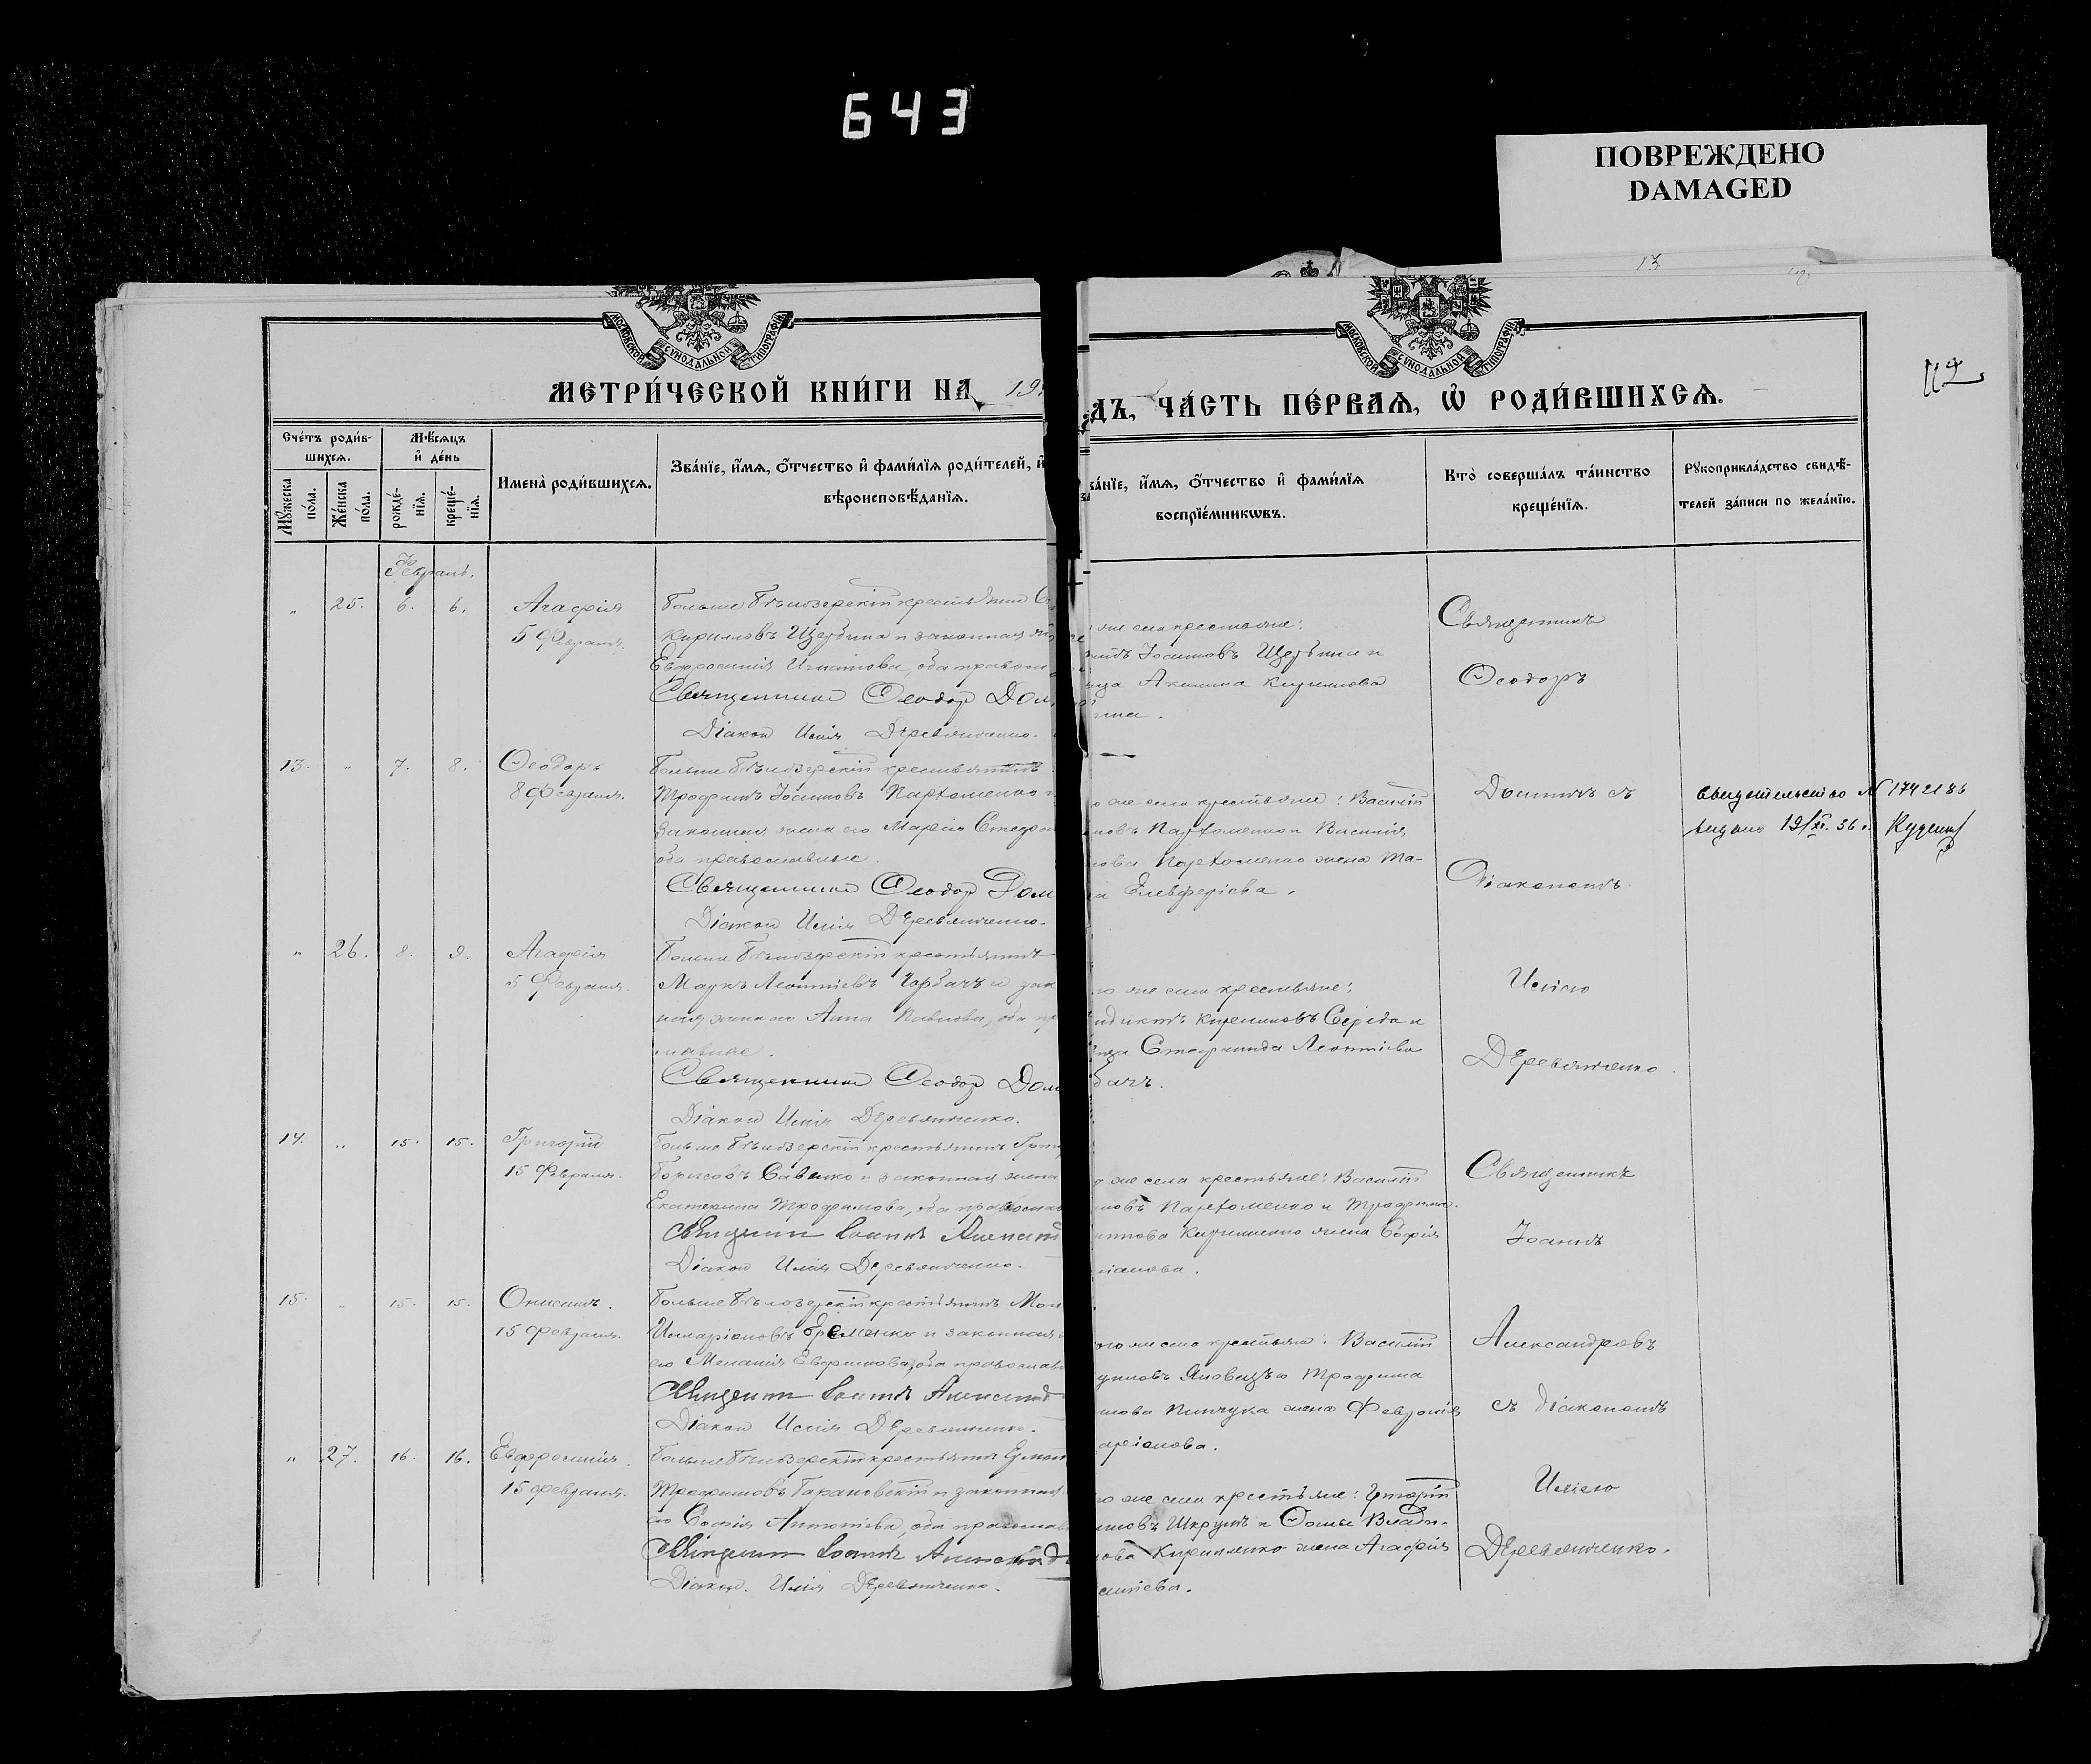 643
ПОВРЕЖДЕНО
DAMAGED
13
МОСКОВСКОЙ СУНОДАЛЬНОЙ ТИПОГРАФІИ
МОСКОВСКОЙ СУНОДАЛЬНОЙ ТИПОГРАФІИ
МЕТРИ́ЧЕСКОЙ КНИ́ГИ НА 19
ДЪ, ЧА́СТЬ ПЕ́РВАѦ, Ѡ РОДИ́ВШИХСѦ.
Сче́тъ роди́в-
шихсѧ.
Мѣ́сѧцъ
и҆ де́нь
Мꙋ́жеска по́ла.
Же́нска по́ла.
рожде́-нїѧ.
креще́-нїѧ.
Имена̀ роди́вшихсѧ.
Зва́нїе, и҆́мѧ, ѻ҆́тчество и҆ фами́лїѧ роди́телей, и҆
вѣроисповѣ́данїѧ.
ва́нїе, и҆́мѧ, ѻ҆́тчество и҆ фами́лїѧ
воспрїе́мникѡвъ.
Кто̀ соверша́лъ та́инство
креще́нїѧ.
Рꙋкоприкла́дство свидѣ́-
телей за́писи по жела́нїю.
Февраль.
" 25. 6. 6. Агафія
5 Февраля.
Больше Бѣлозерскій крестьянин
Кириловъ Щербина и законная
Евфросинія Игнатова, оба правосл
Священникъ Ѳеодор Дом
Діакон Илія Деревянченко.
же села крестьяне:
Іоанновъ Щербина и
Акилина Кирилова
Священникъ
Ѳеодоръ
13. " 7. 8. Ѳеодоръ
8 Февраля.
Больше Бѣлозерскій крестьянинъ
Трофимъ Іоанновъ Пархоменко и
законная жена его Марія Стефан
оба православные.
Священникъ Ѳеодор Дом
Діакон Илія Деревянченко.
о же села крестьяне: Василій
новъ Пархоменко и Василія
нова Пархоменко жена Та-
Елевферіева.
Домничъ съ
Діакономъ
Свидетельство N 1742186
выдано 19/XI. 36 г.
" 26. 8. 9. Агафія
5 Февраля.
Больше Бѣлозерскій крестьянинъ
Маркъ Леонтіевъ Горбачъ и зак
ная жена его Анна Павлова, оба пр
славные.
Священникъ Ѳеодор Дом
Діакон Илія Деревянченко.
го же села крестьяне:
Кирилловъ Середа и
Стефанида Леонтіева
бачъ.
Иліею
Деревянченко.
14. " 15. 15. Григорій
15 Февраля.
Больше Бѣлозерскій крестьянинъ
Борисовъ Савенко и законная жена
Екатерина Трофимова, оба православ
Священникъ Іоаннъ Александ
Діакон Илія Деревянченко.
о же села крестьяне: Василій
новъ Пархоменко и Трофима
Кириленко жена Софія
Священникъ
Іоаннъ
15. " 15. 15. Онисимъ.
15 Февраля.
Больше Бѣлозерскій крестьянинъ
Илларіоновъ Еременко и законная
его Меланія Евфимова, оба православ
Священникъ Іоаннъ Александ
Діакон Илія Деревянченко.
ого же села крестьяне: Василій
Яновецъ и Трофима
Пинчука жена Февронія
аріонова.
Александровъ
съ діакономъ
" 27. 16. 16. Евфросинія.
15 Февраля.
Больше Бѣлозерскій крестьянинъ
Трофимовъ Барановскій и законная
его Софія Антоніева, оба православ
Священникъ Іоаннъ Александ
Діакон. Илія Деревянченко.
го же села крестьяне: Григорій
Шкрумъ и Ѳомы Влади-
Кириленко жена Агафія
Иліею
Деревянченко.